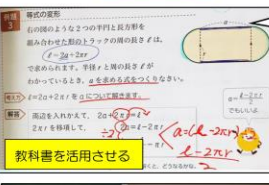 例題 3
等式の変形
右の図のような2つの半円と長方形を
組み合わせた形のトラックの周の長さ ℓ は,
ℓ=2a+2πr
で求められます。半径 r と周の長さ ℓ が
わかっているとき, a を求める式をつくりなさい。
考え方 ℓ=2a+2πr を a について解きます。
解答 両辺を入れかえて, 2a+2πr=ℓ
2πr を移項して, 2a=ℓ-2πr
a=(ℓ-2πr)
ℓ-2πr
2
でもいいね。
教科書を活用させる